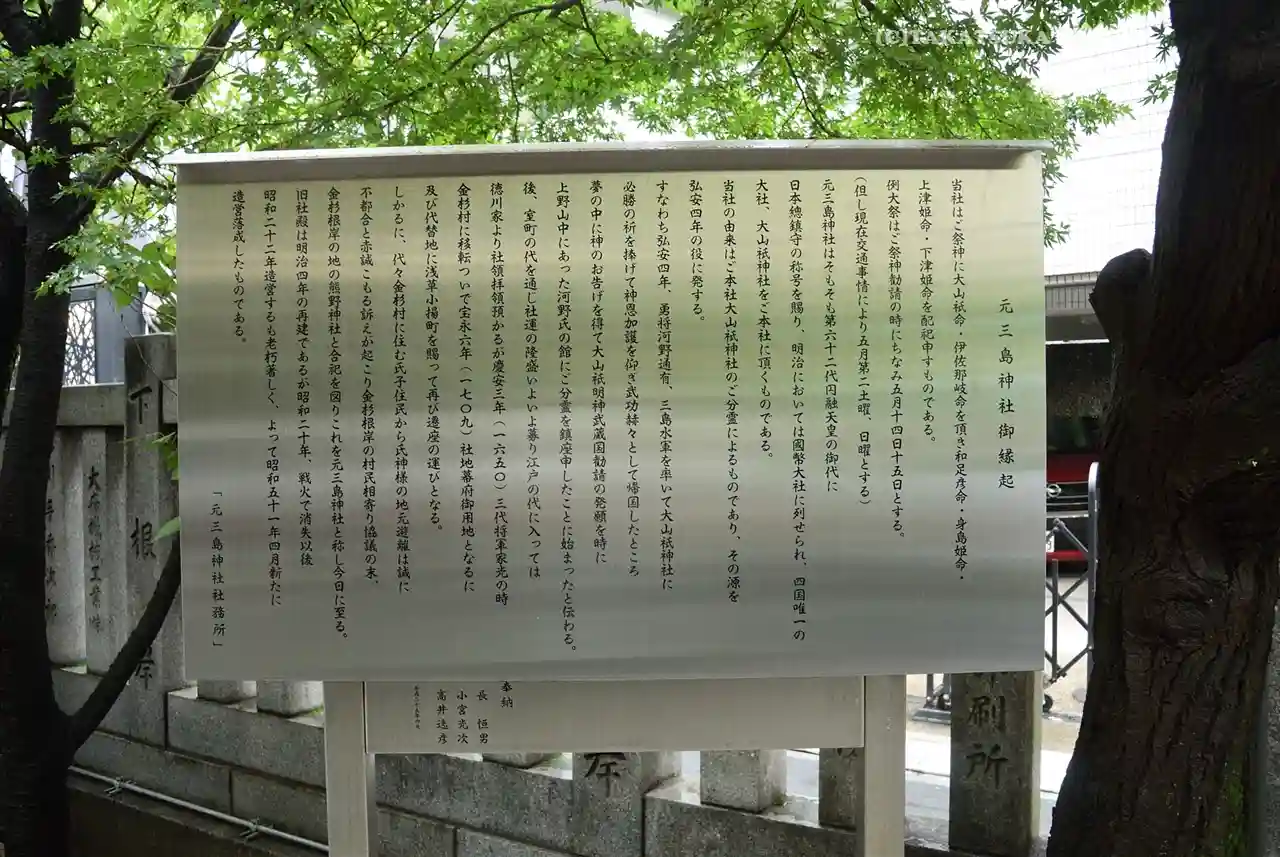 元三島神社御縁起
当社はご祭神に大山祇命・伊佐那岐命を頂き和足彦命・身島姫命・
上津姫命・下津姫命を配祀申すものである。
例大祭はご祭神勧請の時にちなみ五月十四日十五日とする。
(但し現在交通事情により五月第二土曜、日曜とする)
元三島神社はそもそも第六十二代円融天皇の御代に
日本總鎮守の称号を賜り、明治においては國幣大社に列せられ、四国唯一の
大社、大山祇神社をご本社に頂くものである。
当社の由来はご本社大山祇神社のご分霊によるものであり、その源を
弘安四年の役に発する。
すなわち弘安四年、勇将河野通有、三島水軍を率いて大山祇神社に
必勝の祈を捧げて神恩加護を仰ぎ武功赫々として帰国したところ
夢の中に神のお告げを得て大山祇明神武蔵国勧請の発願を時に
上野山中にあった河野氏の館にご分霊を鎮座申したことに始まったと伝わる。
後、室町の代を通じ社運の隆盛いよいよ募り江戸の代に入っては
徳川家より社領拝領預かるが慶安三年(一六五〇)三代将軍家光の時
金杉村に移転ついで宝永六年(一七〇九)社地幕府御用地となるに
及び代替地に浅草小揚町を賜って再び遷座の運びとなる。
しかるに、代々金杉村に住む氏子住民から氏神様の地元遊離は誠に
不都合と赤誠こもる訴えが起こり金杉根岸の村民相寄り協議の末、
金杉根岸の地の熊野神社と合祀を図りこれを元三島神社と称し今日に至る。
旧社殿は明治四年の再建であるが昭和二十年、戦火で消失以後
昭和二十二年造営するも老朽著しく、よって昭和五十一年四月新たに
造営落成したものである。
「元三島神社社務所」
奉納
長 恒男
小宮光次
高井逸彦
下根岸
刷所